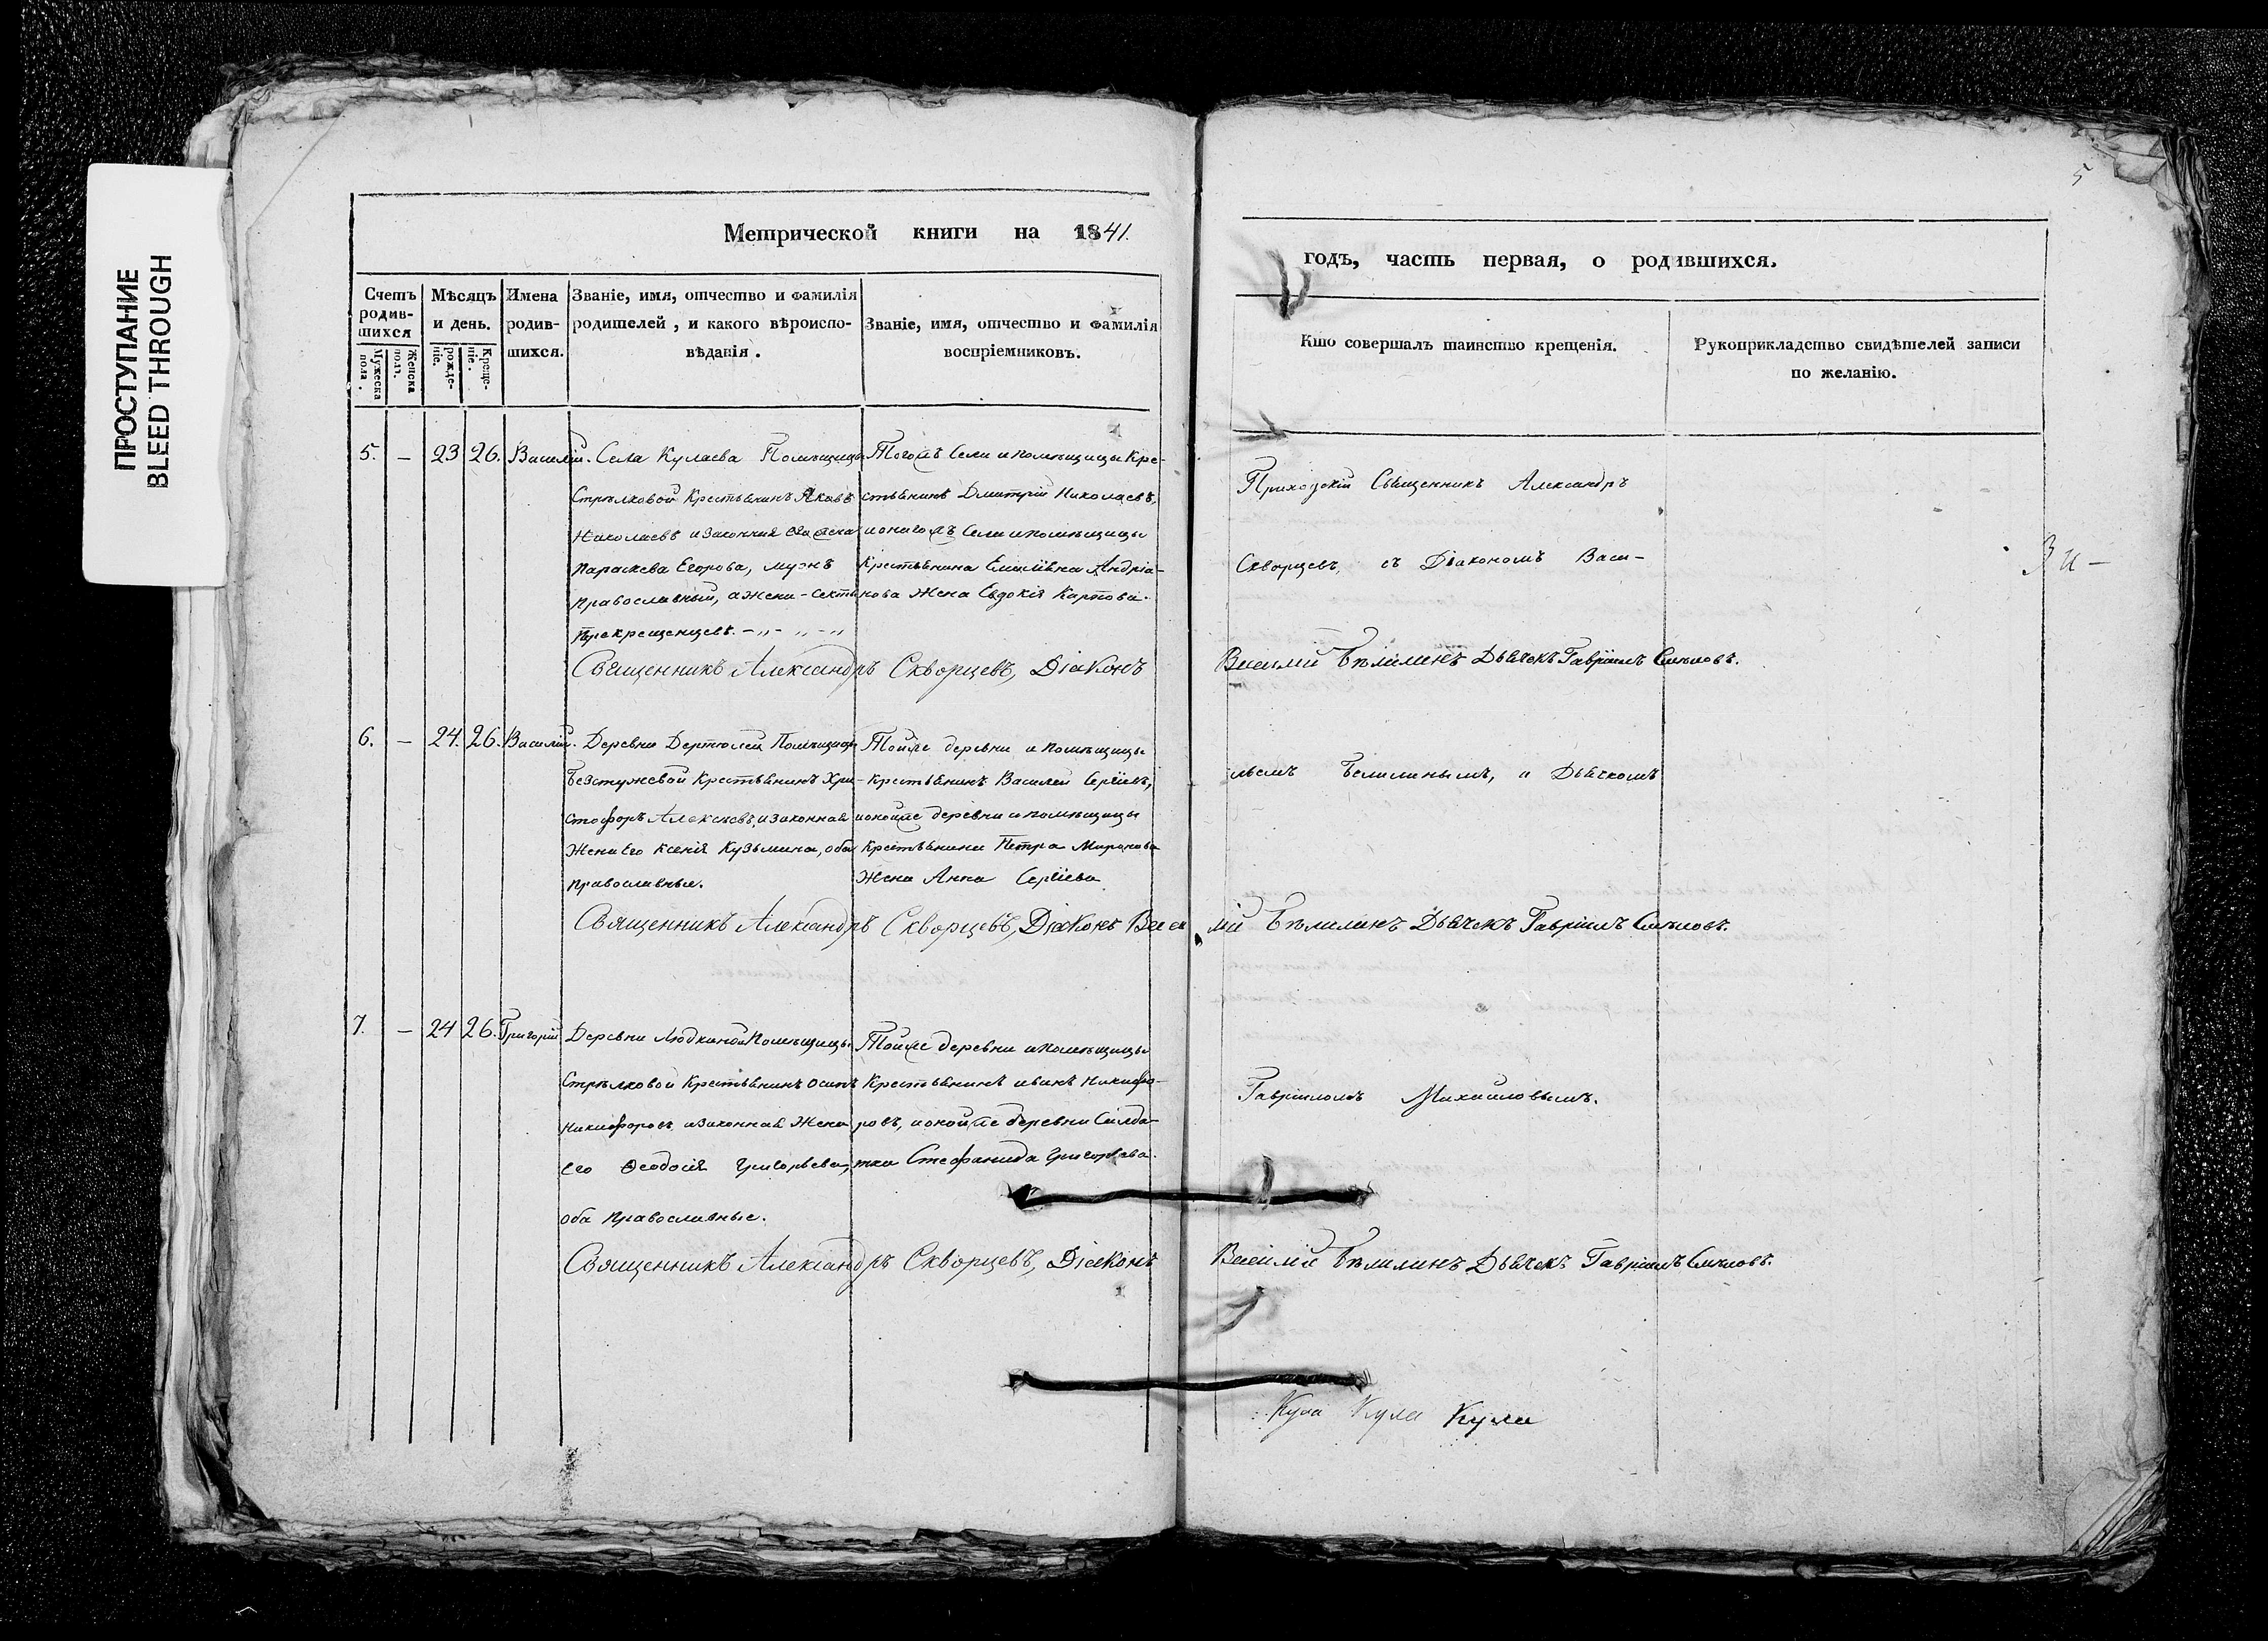 ПРОСТУПАНИЕ
BLEED THROUGH
Метрической книги на 1841.
Счетъ родившихся
Мужеска пола.
Женска пола.
Мѣсяцъ и день.
рожденіе.
Крещеніе.
Имена родившихся.
Званіе, имя, отчество и фамилія
родителей, и какого вѣроиспо-
вѣданія.
Званіе, имя, отчество и фамилія
воспріемниковъ.
5. — 23 26. Василій.
Села Кулаева Помѣщицы
Стрѣлковой Крестьянинъ Яковъ
Николаевъ и законная его жена
Параскева Егорова, мужъ
православный, а жена - секты
Перекрещенцевъ. - „ - „ - „
Тогожъ Села и помѣщицы Кре-
стьянинъ Дмитрій Николаевъ,
и оногожъ Села и помѣщицы
Крестьянина Емеліяна Андріа-
нова Жена Евдокія Карпова.
Священникъ Александръ Скворцевъ, Діаконъ
6. — 24. 26. Василій.
Деревни Дертюлей Помѣщицы
Безстужевой Крестьянинъ Хри-
стофоръ Алексѣевъ, и законная
Жена Его Ксенія Кузьмина, оба
православные.
Тойже деревни и помѣщицы
Крестьянинъ Василей Сергіевъ,
и онойже деревни и помѣщицы
Крестьянина Петра Миронова
Жена Анна Сергіева
Священникъ Александръ Скворцевъ, Діаконъ Васи
7. — 24 26. Григорій
Деревни Людкиной Помѣщицы
Стрѣлковой Крестьянинъ Осипъ
Никифоровъ и законная Жена
Его Ѳеодосія Григорьева,
оба православные.
Тойже деревни и помѣщицы
Крестьянинъ иванъ Никифо-
ровъ, и онойже деревни Салда-
тка Стефанида Григорьева.
Священникъ Александръ Скворцевъ, Діаконъ
5
годъ, часть первая, о родившихся.
Кто совершалъ таинство крещенія.
Рукоприкладство свидѣтелей записи
по желанію.
Приходскій Священникъ Александръ
Скворцевъ, съ Діакономъ Васи-
Василій Бѣлилинъ Дьячекъ Гавріилъ
льемъ Белилинымъ, и Дьячкомъ
лій Бѣлилинъ Дьячекъ Гавріилъ
Гавріиломъ Михайловымъ.
Василій Бѣлилинъ Дьячекъ Гавріилъ
Кула Кула Кула